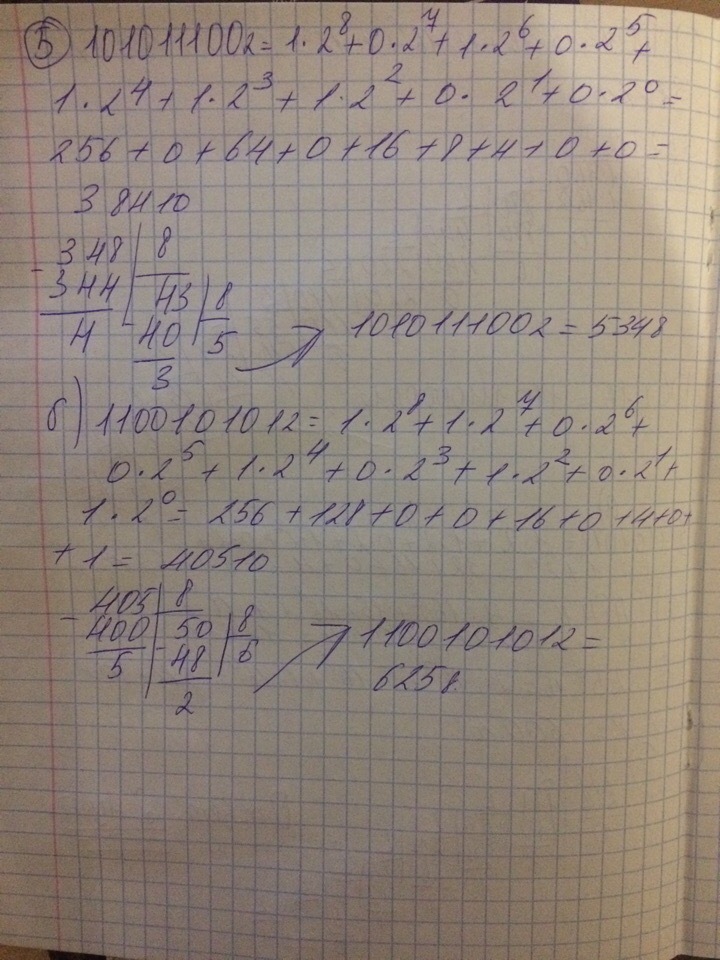 5 101011100₂ = 1·2⁸+0·2⁷+1·2⁶+0·2⁵+
1·2⁴+1·2³+1·2²+0·2¹+0·2⁰=
256+0+64+0+16+8+4+0+0=
384₁₀
- 348 8
344 43 8
4 40 5
3
101011100₂ = 534₈
б) 110010101₂ = 1·2⁸+1·2⁷+0·2⁶+
0·2⁵+1·2⁴+0·2³+1·2²+0·2¹+
1·2⁰= 256+128+0+0+16+0+4+0+
+1= 405₁₀
- 405 8
400 50 8
5 - 48 6
2
110010101₂ =
625₈